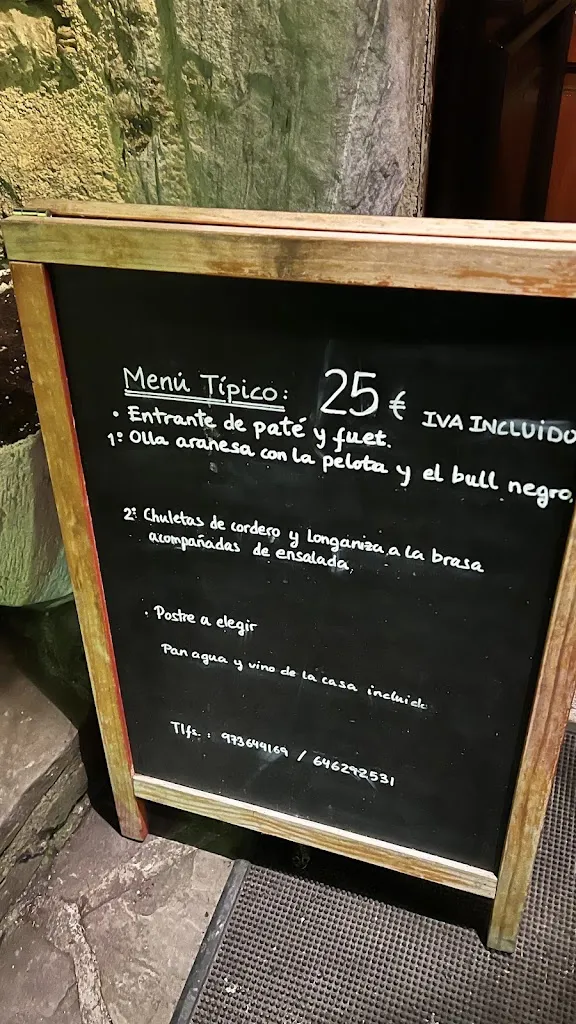 Menú Típico: 25 € IVA INCLUIDO
· Entrante de paté y fuet.
1º Olla aranesa con la pelota y el bull negro.
2º Chuletas de cordero y longaniza a la brasa
acompañadas de ensalada.
· Postre a elegir
Pan agua y vino de la casa incluido
Tlfs. : 973649169 / 646292531